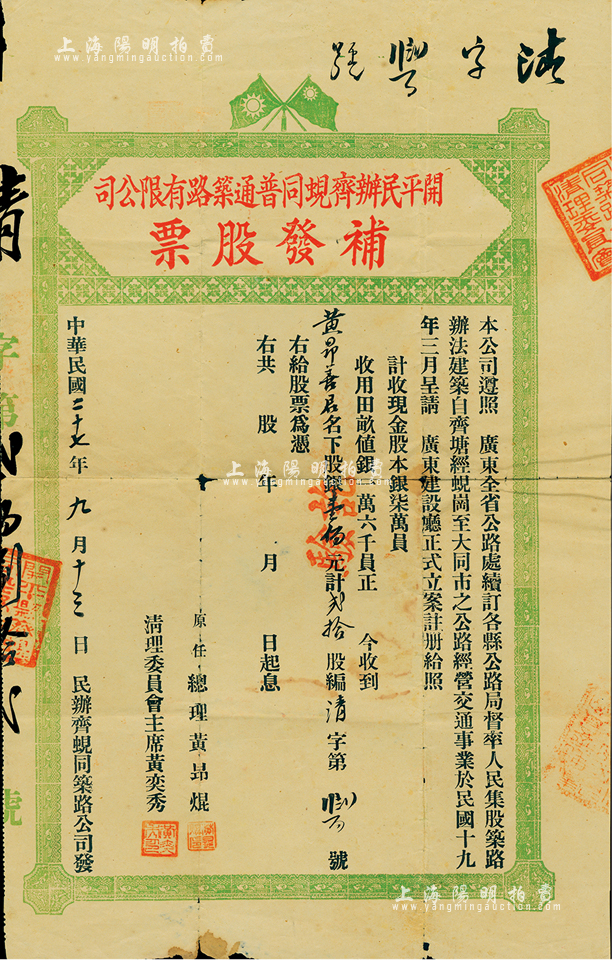 上海陽明拍賣
www.yangmingauction.com
清字 號
開平民辦齊蜆同普通築路有限公司
補發股票
本公司遵照 廣東全省公路處續訂各縣公路局督率人民集股築路
辦法建築自齊塘經蜆崗至大同市之公路經營交通事業於民國十九
年三月呈請 廣東建設廳正式立案註册給照
計收現金股本銀柒萬員
收用田畝值銀 萬六千員正 今收到
黃昂善君名下股銀壹佰元計貳拾股編清字第 號
右給股票爲憑
右共 股 年 月 日起息
原任總理黃昂焜
清理委員會主席黃奕秀
中華民國二十七年九月十三日 民辦齊蜆同築路公司發
清字第 號
清理委員會
上海陽明拍賣
www.yangmingauction.com
上海陽明拍賣
www.yangmingauction.com